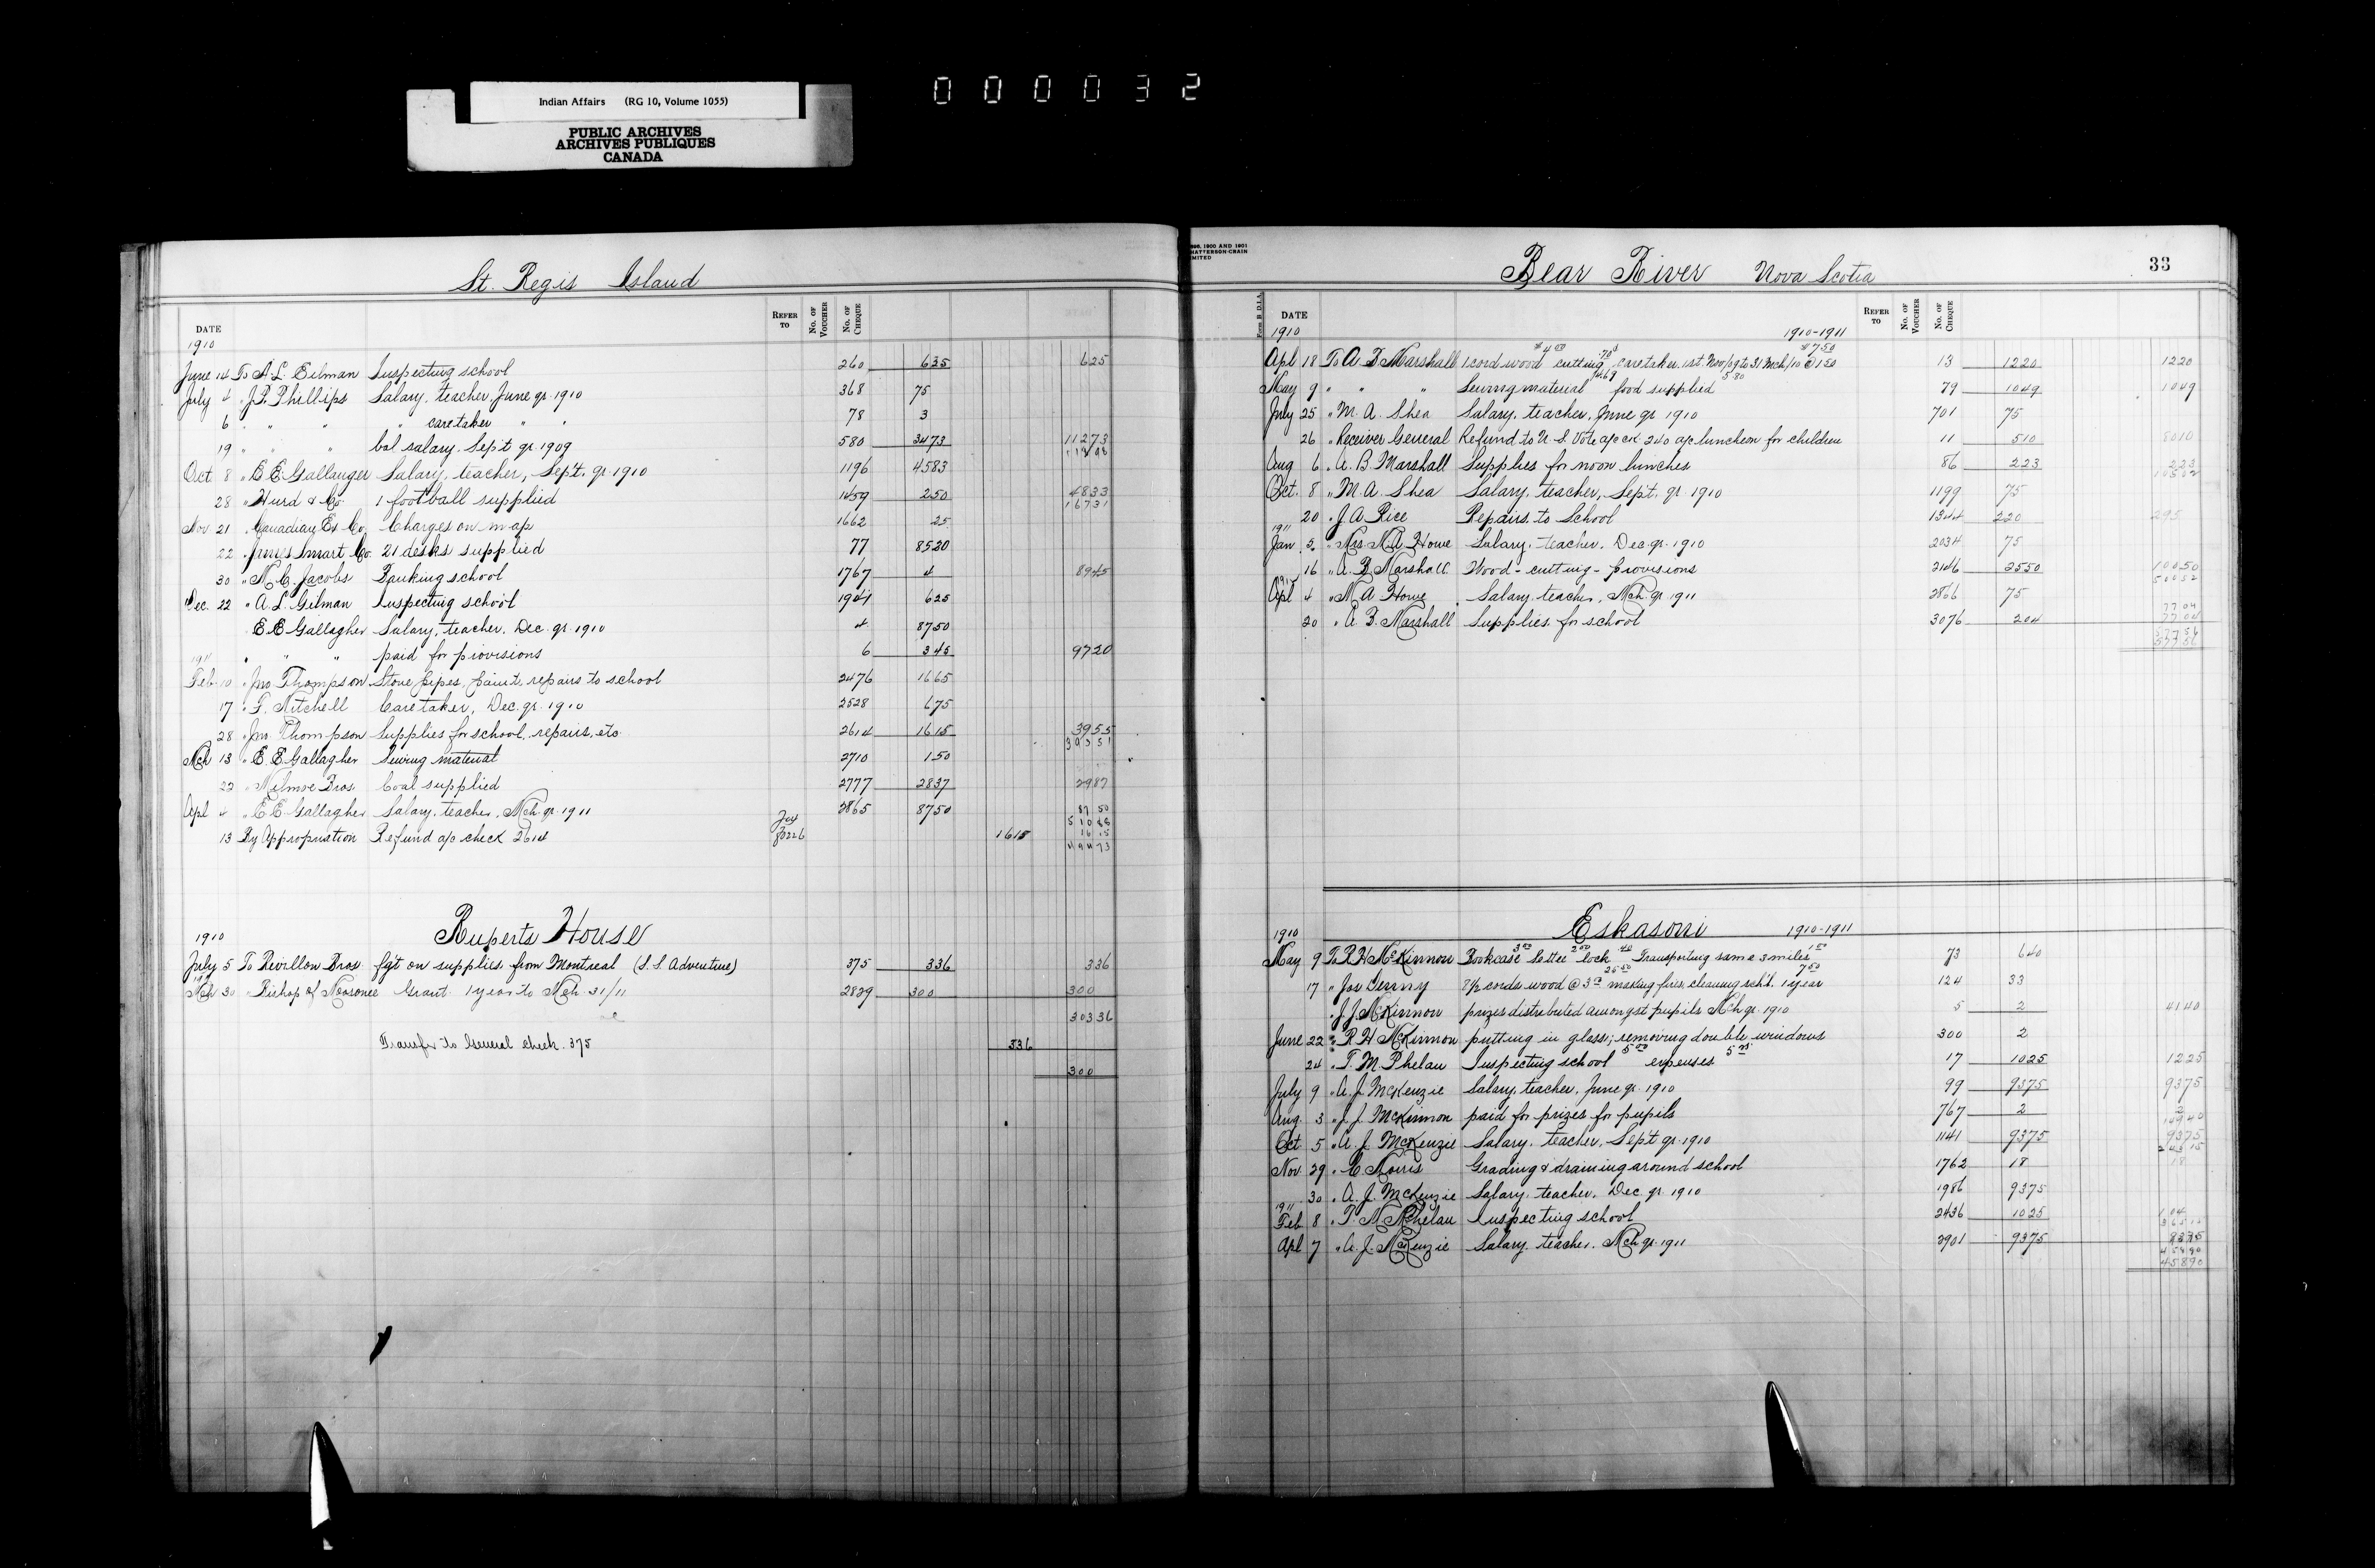 000032
Indian Affairs (RG 10, Volume 1055)
PUBLIC ARCHIVES
ARCHIVES PUBLIQUES
CANADA
St. Regis Island
DATE REFER TO No. OF VOUCHER No. OF CHEQUE
1910
June 14 To A. L. Gilman Inspecting school 260 625 625
July 4 " J. P. Phillips Salary, teacher, June qr. 1910 368 75
6 " " " " caretaker " " 78 3
19 " " " bal salary. Sept qr. 1909 580 3473 11273
Oct 8 " E. E. Gallanger Salary, teacher, Sept. qr. 1910 1196 4583
28 " Hurd & Co 1 football supplied 1459 250 4833
16731
Nov 21 " Canadian Ex Co. Charges on map 1662 25
22 " James Smart Co. 21 desks supplied 77 8520
30 " M. C. Jacobs Banking school 1767 4 8945
Dec. 22 " A. L. Gilman Inspecting school 1941 625
E. E. Gallagher Salary, teacher, Dec. qr. 1910 4 8750
1911 " " " paid for provisions 6 345 9720
Feb. 10 " Jno Thompson Stove pipes, paint, repairs to school 2476 1665
17 " F. Mitchell Caretaker, Dec. qr. 1910 2528 675
28 " Jno Thompson Supplies for school, repairs, etc. 2614 1615 3955
Mch 13 " E. E. Gallagher Sewing material 2710 150
22 " Milmoe Bros. Coal supplied 2777 2837 2987
Apl 4 " E. E. Gallagher Salary, teacher, Mch. qr. 1911 2865 8750 8750
13 By Appropriation Refund a/c check 2614 1615 1615
49473
Ruperts House
1910
July 5 To Revillon Bros. fg't on supplies from Montreal (S. S. Adventure) 375 336 336
Mch 30 " Bishop of Moosonee Grant. 1 year to Mch 31/11 2829 300 300
30336
Transfer to General check. 375 336
300
33
Bear River Nova Scotia
Form B D.I.A. DATE REFER TO No. OF VOUCHER No. OF CHEQUE
1910 1910-1911
Apl 18 To A. B. Marshall 1 cord wood $4.00 cutting .70 caretaker. 1st Nov/09 to 31 Mch/10 @ 1.50 $7.50 13 1220 1220
May 9 " " " Sewing material 4.69 food supplied 5.80 79 1049 1049
July 25 " M. A. Shea Salary, teacher, June qr 1910 701 75
26 " Receiver General Refund to N. S. Vote a/c ck 240 a/c luncheon for children 11 510 8010
Aug 6 " A. B. Marshall Supplies for noon lunches 86 223 223
10502
Oct. 8 " M. A. Shea Salary, teacher, Sept. qr. 1910 1199 75
20 " J. A. Rice Repairs to School 1344 220
1911
Jan 5 " Mrs. M. A. Howe Salary, teacher. Dec. qr. 1910 2034 75
16 " A. B. Marshall Wood - cutting - provisions 2146 2550 10050
Apl 4 " M. A. Howe Salary, teacher, Mch. qr. 1911 2866 75
20 " A. B. Marshall Supplies for school 3076 204 7704
Eskasoni 1910-1911
1910
May 9 To R. H. McKinnon Bookcase 3.00 Settee 2.00 lock .40 Transporting same 3 miles 1.00 73 640
17 " Jos Denny 8½ cords wood @ 3.00 25.50 making fires, cleaning sch'l. 1 year 7.50 124 33
" J. J. McKinnon prizes distributed amongst pupils Mch qr. 1910 5 2 4140
June 22 " R. H. McKinnon putting in glass; removing double windows 300 2
24 " T. M. Phelan Inspecting school 5.00 expenses 5.25 17 1025 1225
July 9 " A. J. McKenzie Salary, teacher, June qr. 1910 99 9375 9375
Aug. 3 " J. J. McKinnon paid for prizes for pupils 767 2 2
14940
Oct 5 " A. J. McKenzie Salary, teacher, Sept qr. 1910 1141 9375 9375
24315
Nov. 29 " C. Norris Grading & draining around school 1762 18 18
30 " A. J. McKenzie Salary, teacher. Dec. qr. 1910 1986 9375
1911
Feb 8 " T. M. Phelan Inspecting school 2436 1025 104
Apl 7 " A. J. McKenzie Salary, teacher. Mch qr. 1911 2901 9375 9375
45890
45890